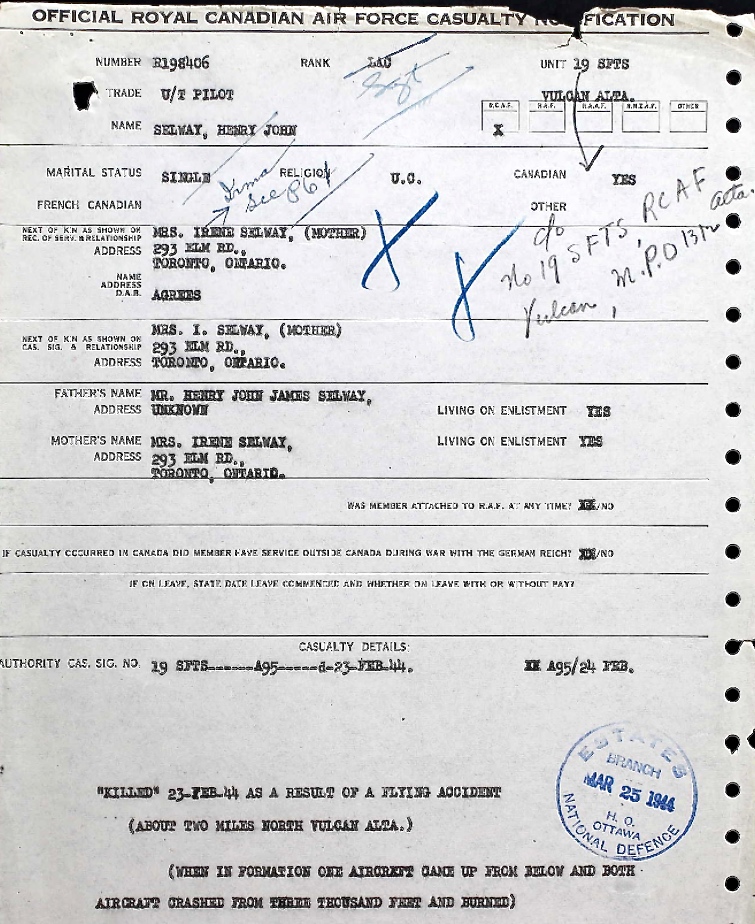 OFFICIAL ROYAL CANADIAN AIR FORCE CASUALTY NOTIFICATION
NUMBER R198406 RANK LAC UNIT 19 SFTS
Sgt
TRADE U/T PILOT VULCAN ALTA.
R.C.A.F. R.A.F. R.A.A.F. R.N.Z.A.F. OTHER
NAME SELWAY, HENRY JOHN X
MARITAL STATUS SINGLE RELIGION U.C. CANADIAN YES
Irma
See P61
FRENCH CANADIAN OTHER
c/o
No 19 SFTS, RCAF
Vulcan, M.P.O 1312 alta.
NEXT OF KIN AS SHOWN ON REC. OF SERV. & RELATIONSHIP MRS. IRENE SELWAY, (MOTHER)
ADDRESS 293 ELM RD.,
TORONTO, ONTARIO.
NAME
ADDRESS
D.A.B. AGREES
MRS. I. SELWAY, (MOTHER)
NEXT OF KIN AS SHOWN ON CAS. SIG. & RELATIONSHIP 293 ELM RD.,
ADDRESS TORONTO, ONTARIO.
FATHER'S NAME MR. HENRY JOHN JAMES SELWAY,
ADDRESS UNKNOWN LIVING ON ENLISTMENT YES
MOTHER'S NAME MRS. IRENE SELWAY, LIVING ON ENLISTMENT YES
ADDRESS 293 ELM RD.,
TORONTO, ONTARIO.
WAS MEMBER ATTACHED TO R.A.F. AT ANY TIME? XX/NO
IF CASUALTY OCCURRED IN CANADA DID MEMBER HAVE SERVICE OUTSIDE CANADA DURING WAR WITH THE GERMAN REICH? XX/NO
IF ON LEAVE, STATE DATE LEAVE COMMENCED AND WHETHER ON LEAVE WITH OR WITHOUT PAY?
CASUALTY DETAILS:
AUTHORITY CAS. SIG. NO. 19 SFTS------A95-----d-23-FEB-44. XX A95/24 FEB.
ESTATES
BRANCH
MAR 25 1944
H. O.
OTTAWA
NATIONAL DEFENCE
"KILLED" 23-FEB-44 AS A RESULT OF A FLYING ACCIDENT
(ABOUT TWO MILES NORTH VULCAN ALTA.)
(WHEN IN FORMATION ONE AIRCRAFT CAME UP FROM BELOW AND BOTH
AIRCRAFT CRASHED FROM THREE THOUSAND FEET AND BURNED)